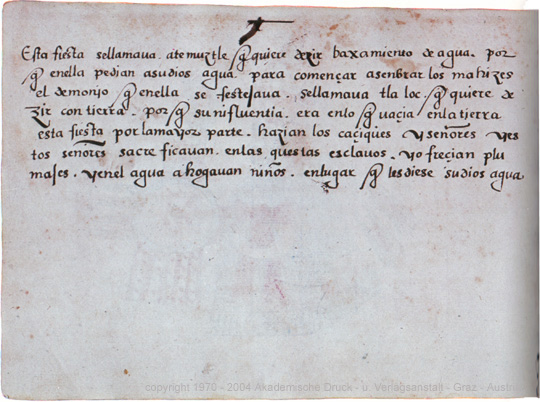 Esta fiesta sellamaua. atemuztle. q̃ quiere dezir baxamiento de agua. por
q̃ enella pedian asudios agua. para començar asenbrar los mahizes
el demonjo q̃ enella se festejaua. sellamaua tlaloc. q̃ quiere de
zir con tierra. por q̃ su ynfluentia. era enlo q̃ vaçia enla tierra
esta fiesta por lamayor parte. hazian los caçiques y señores yes
tos señores sacreficauan. enlas questas esclauos. yofreçian plu
majes. yenel agua ahogauan niños. enlugar q̃ lesdiese sudios agua
copyright 1970 - 2004 Akademische Druck - u. Verlagsanstalt - Graz - Austria